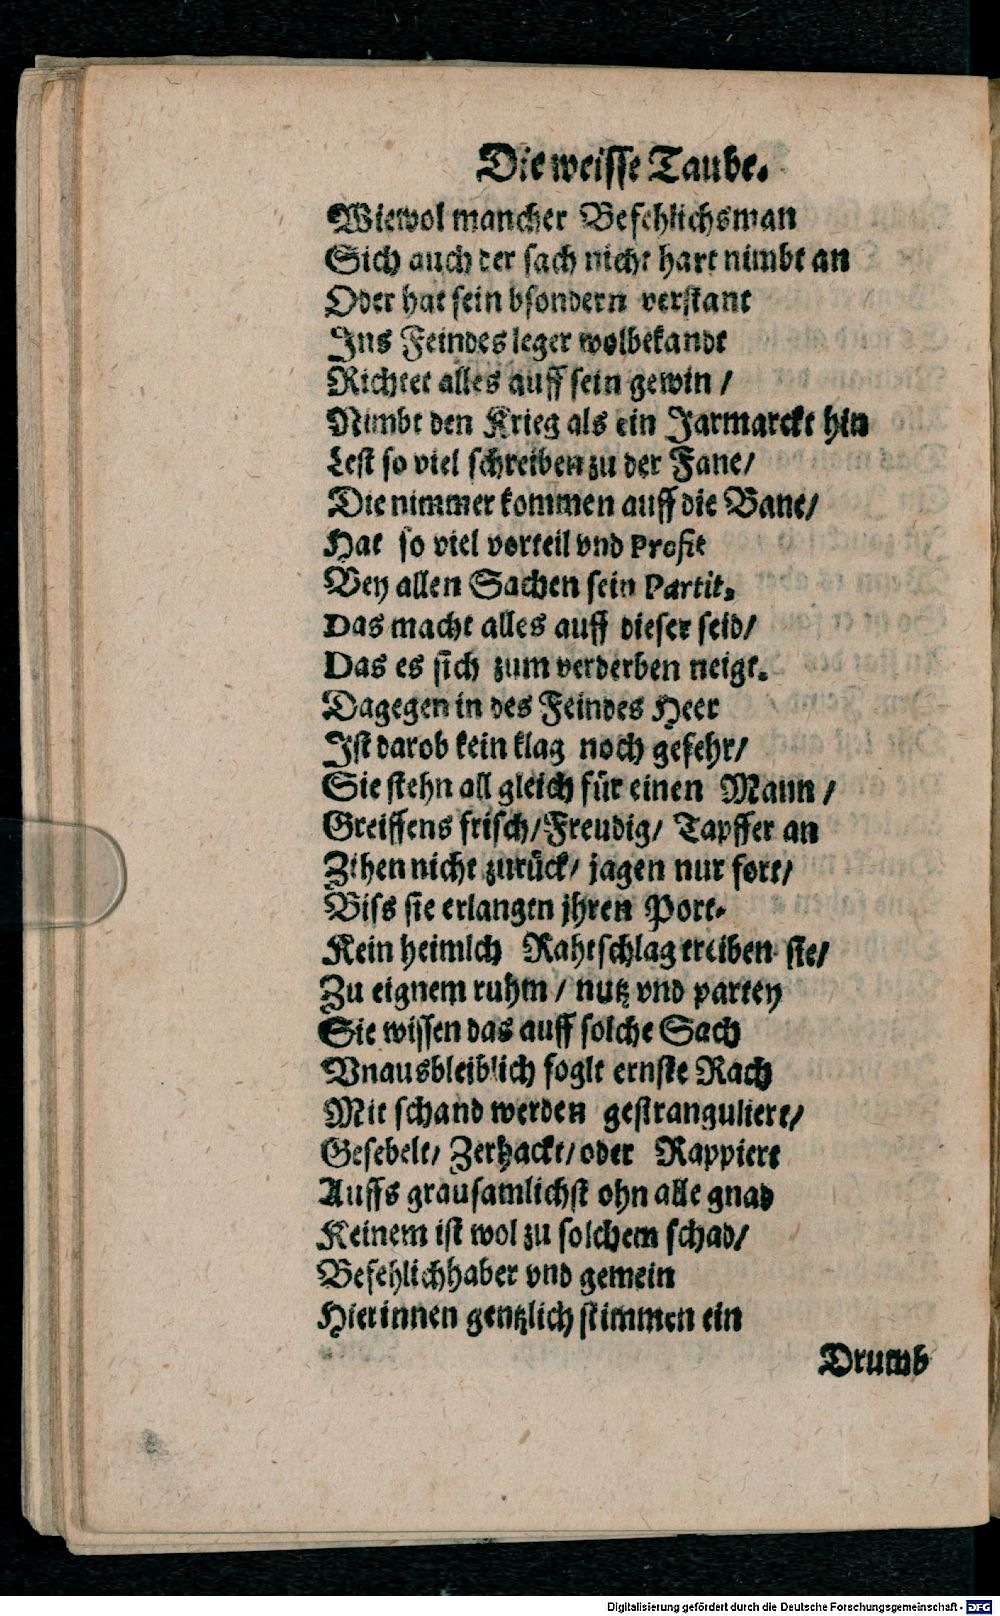 Die weisse Taube.
Wiewol mancher Befehlichsman
Sich auch der sach nicht hart nimbt an
Oder hat sein bsondern verstant
Ins Feindes leger wolbekandt
Richtet alles auff sein gewin /
Nimbt den Krieg als ein Jarmarckt hin
Lest so viel schreiben zu der Fane/
Die nimmer kommen auff die Bane/
Hat so viel vorteil vnd Profit
Bey allen Sachen sein Partit.
Das macht alles auff dieser seid/
Das es sich zum verderben neigt.
Dagegen in des Feindes Heer
Ist darob kein klag noch gefehr/
Sie stehn all gleich für einen Mann /
Greiffens frisch/Freudig/ Tapffer an
Zihen nicht zurück/ jagen nur fort/
Biss sie erlangen jhren Port.
Kein heimlch Rahtschlag treiben sie/
Zu eignem ruhm / nutz vnd partey
Sie wissen das auff solche Sach
Vnausbleiblich foglt ernste Rach
Mit schand werden gestranguliert/
Gesebelt/ Zerhackt/oder Rappiert
Auffs grausamlichst ohn alle gnad
Keinem ist wol zu solchem schad/
Befehlichhaber vnd gemein
Hierinnen gentzlich stimmen ein
Drumb
Digitalisierung gefördert durch die Deutsche Forschungsgemeinschaft - DFG